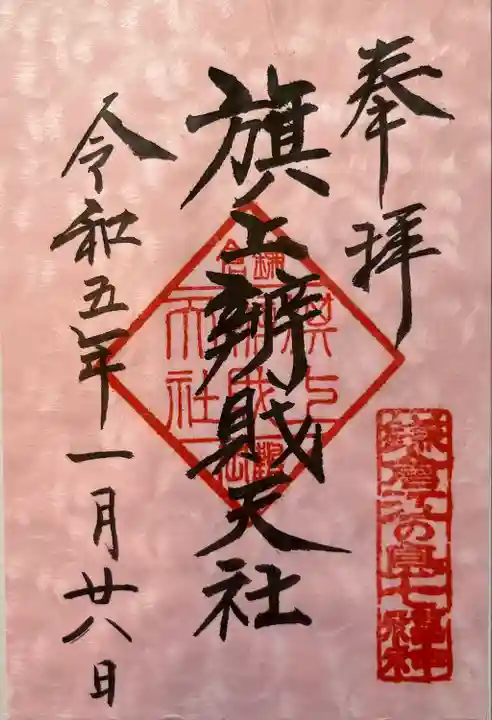 奉拝
旗上辨財天社
令和五年一月廿八日
鎌倉江の島七福神